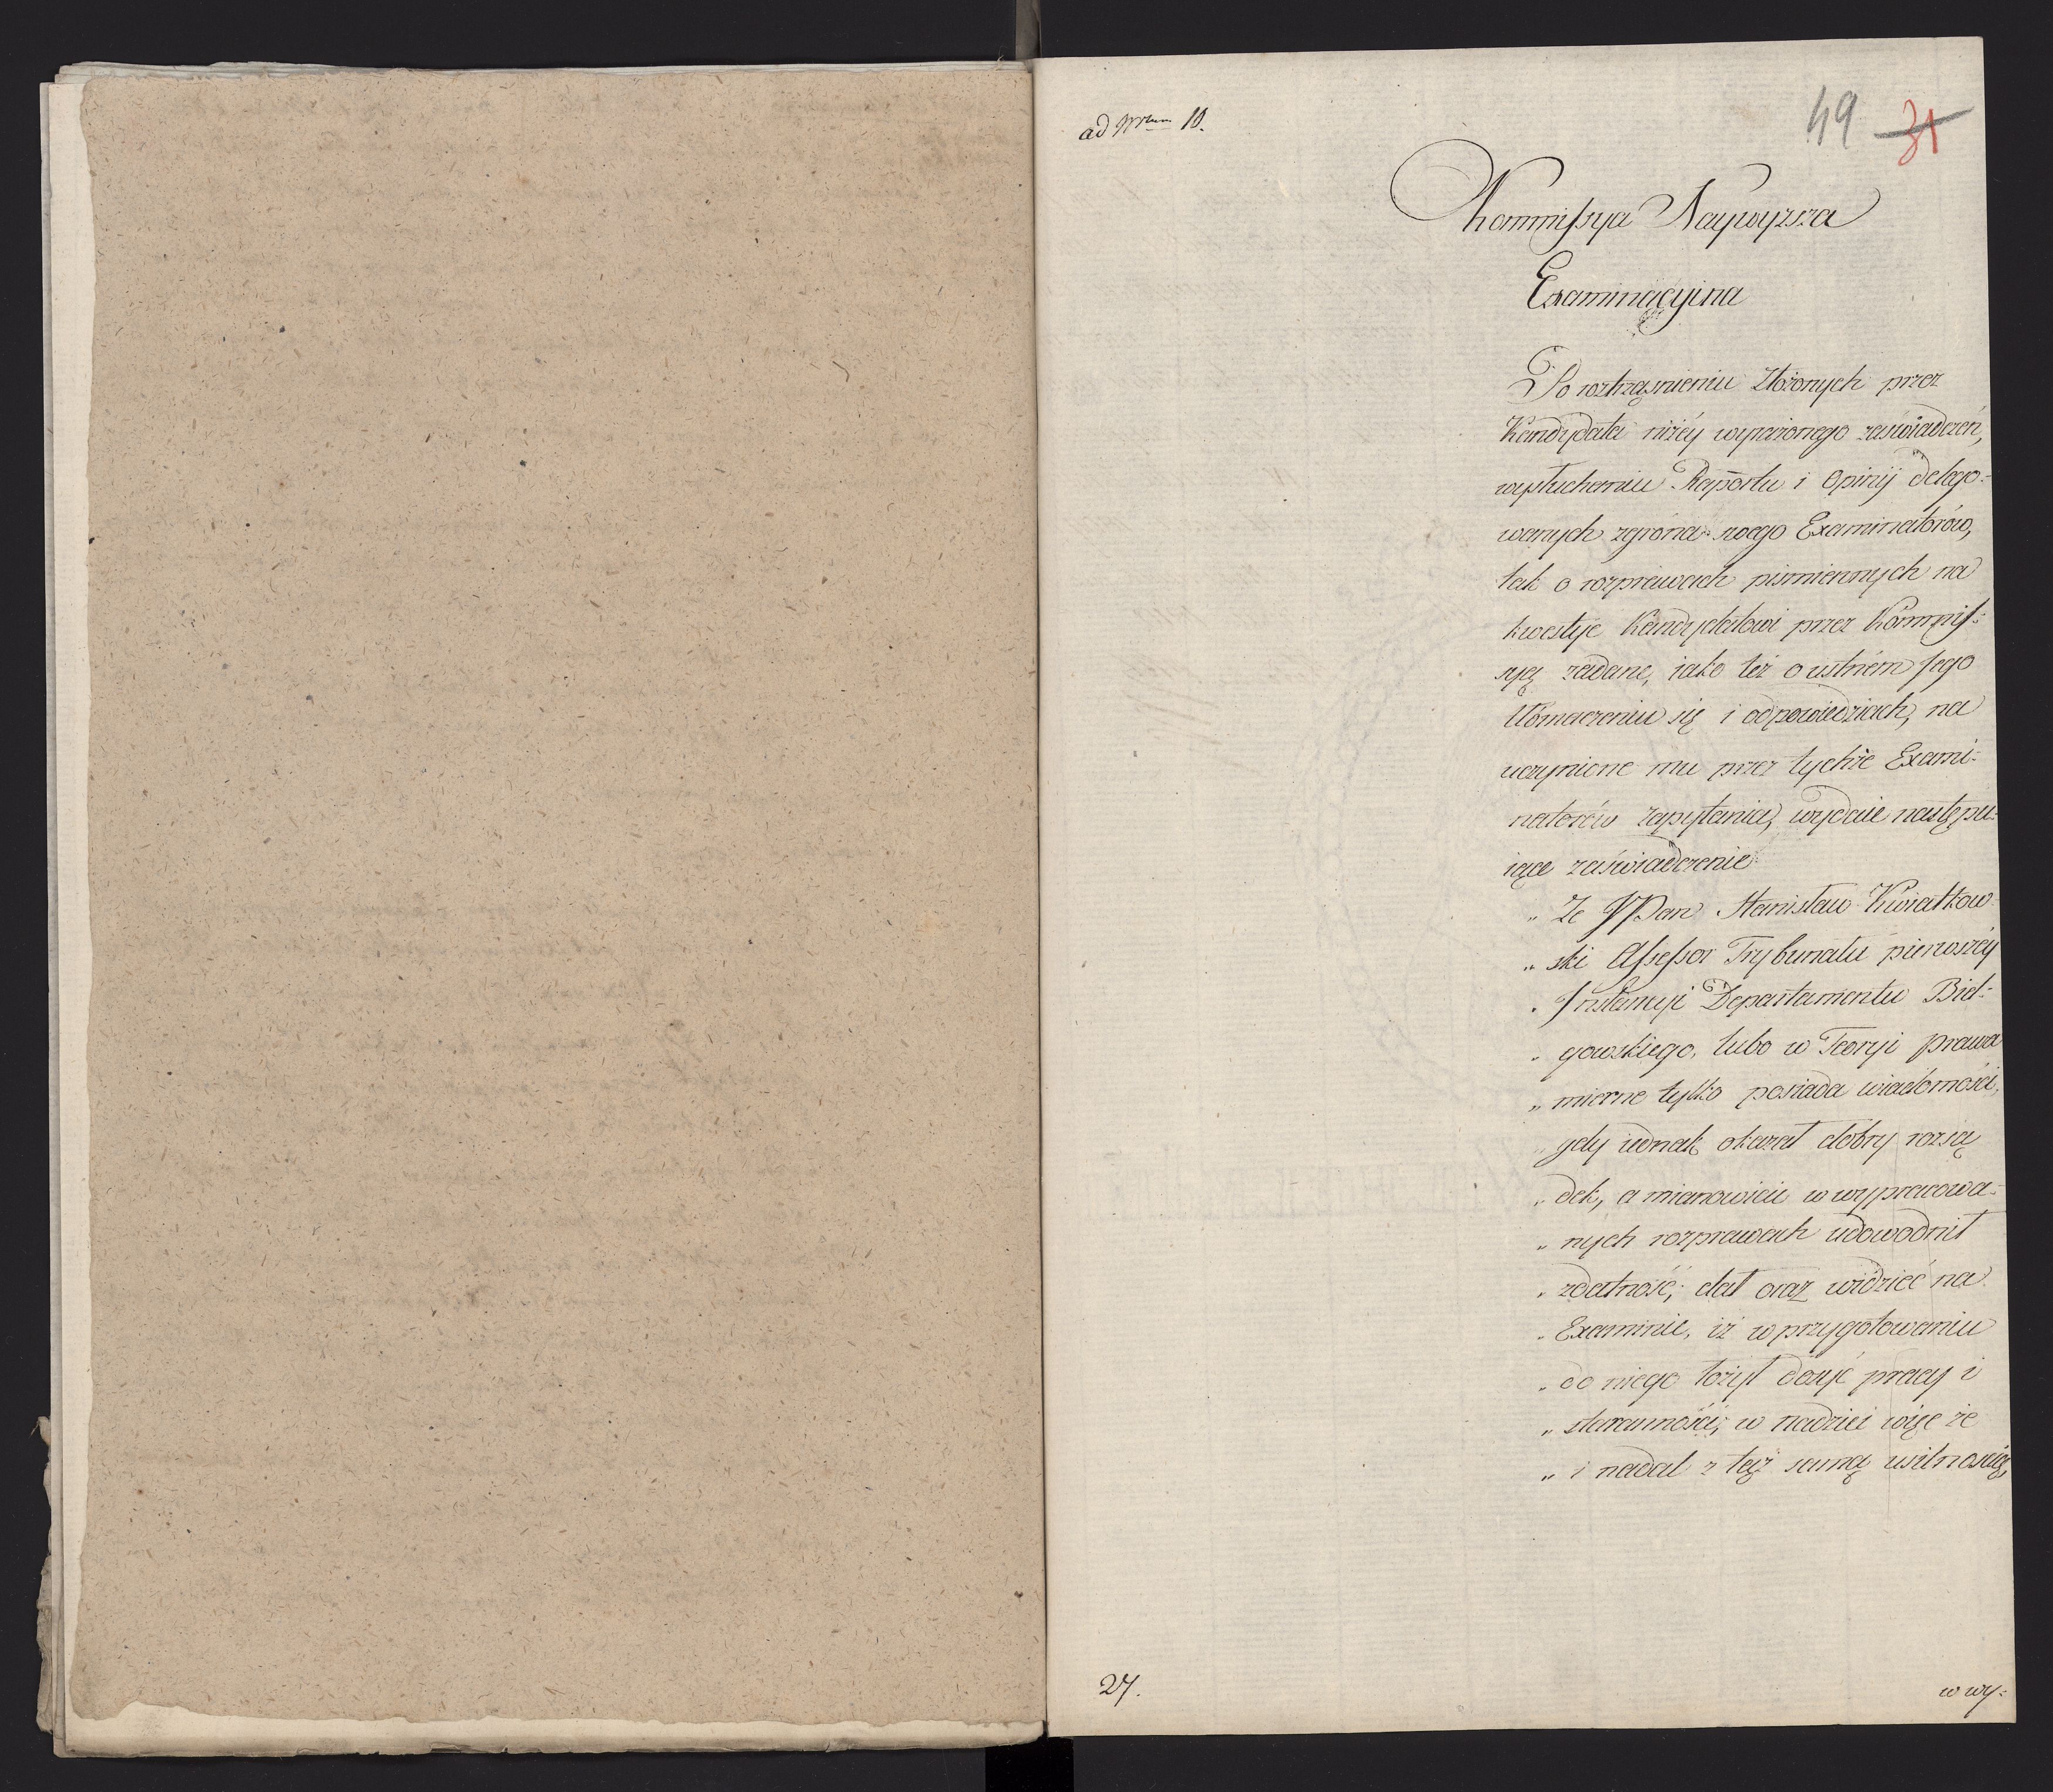 ad Nrum 10.
49 31
Kommissya Naywyższa
Examinacyina
Po roztrząśnieniu złożonych przez
Kandydata niżéy wyrażonego zaświadczeń,
wysłuchaniu Raportu i Opinij delego-
wanych zgrona swego Examinatorów,
tak o rozprawach piśmiennych na
kwestye Kandydatowi przez Kommis-
syą zadane, iako też o ustném Jego
tłómaczeniu się i odpowiedziach, na
uczynione mu przez tychże Exami-
natorów zapytania, wydaie następu-
iące zaświadczenie
„ Że JPan Stanisław Kwiatkow-
„ ski Assessor Trybunału pierwszéy
„ Instancyi Departamentu Bid-
„ gowskiego, lubo w Teoryi prawa
„ mierne tylko posiada wiadomości,
„ gdy iednak okazał dobry rozsą
„ dek, a mianowicie w wypracowa-
„ nych rozprawach udowodnił
„ zdatność; dał oraz widzieć na
„ Examinie, iż w przygotowaniu
„ do niego łożył dosyć pracy i
„ staranności; w nadziei więc że
„ i nadal z tąż samą usilnością,
27.
w wy-